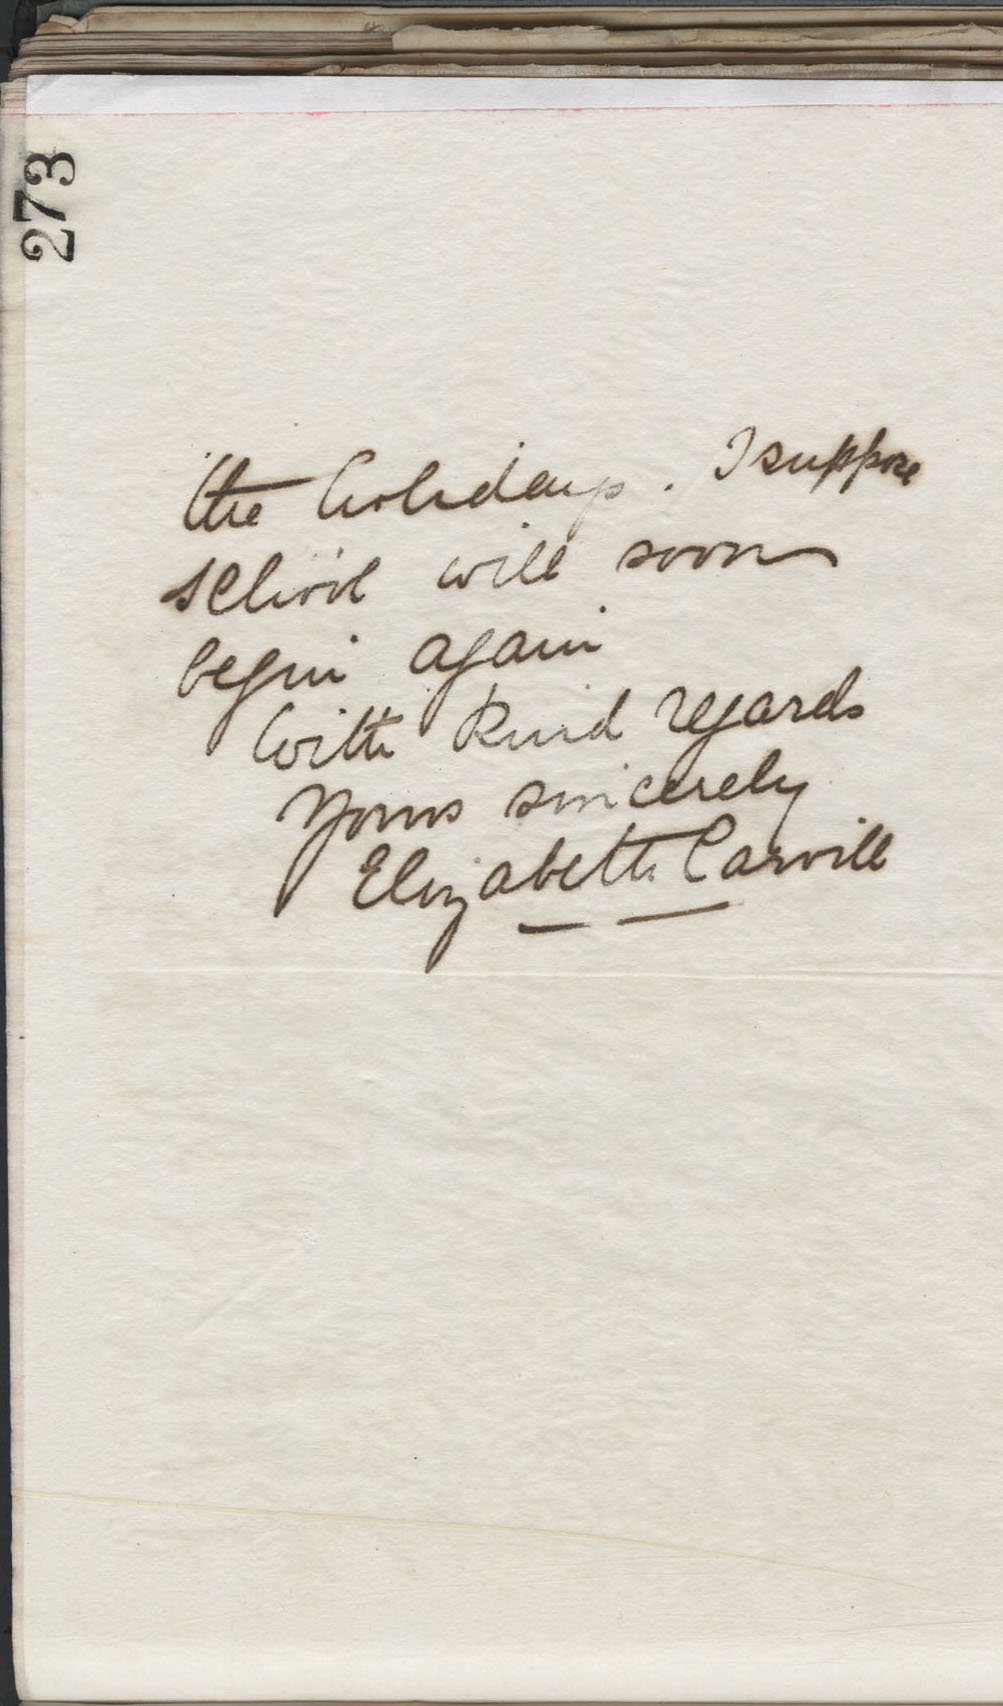 273
the holidays. I suppose
school will soon
begin again
With kind regards
Yours sincerely
Elizabeth Carvill